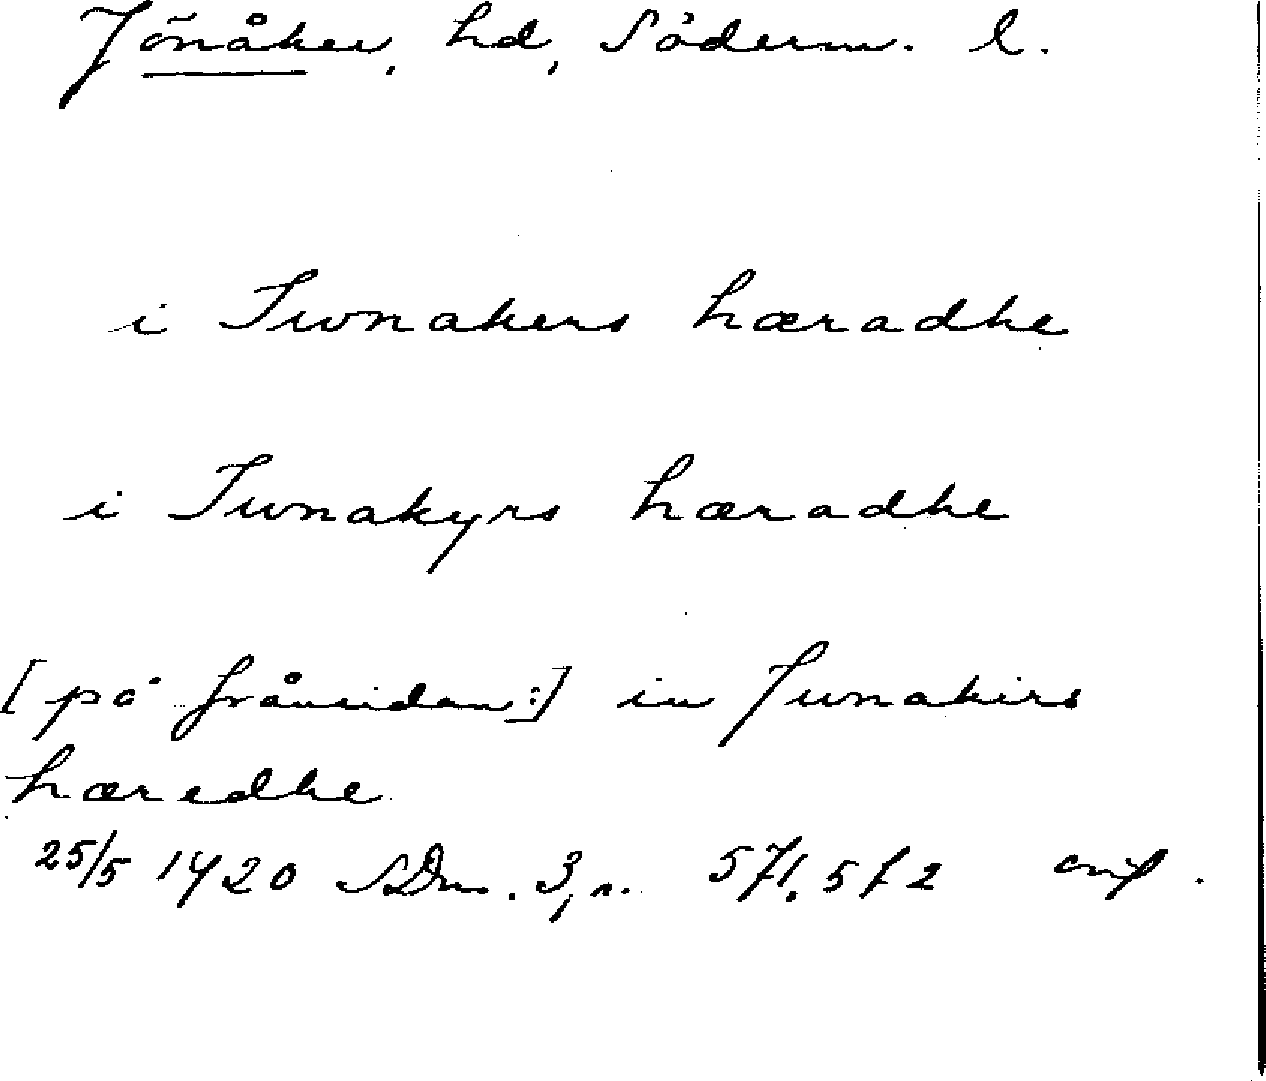 Jönåker, hd, Söderm. l.
i Iwnakers hæradhe
i Iwnakyrs hæradhe
[på frånsidan:] in Junakirs
hæredhe
25/5 1420 SDns. 3, s. 571. 572 orig.